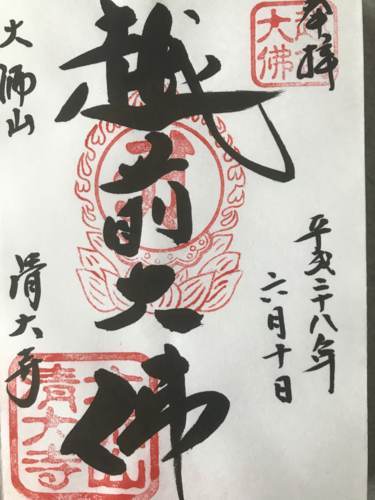 奉拝
越前
大佛
平成二十八年
六月十日
越前大佛
大師山
清大寺
大師山
清大寺